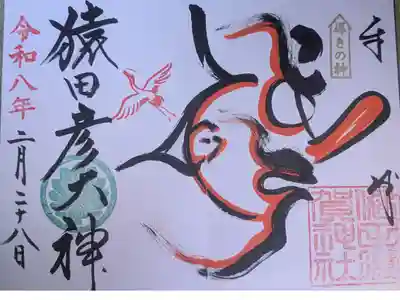 導きの神
猿田彦大神
令和八年
二月二十八日